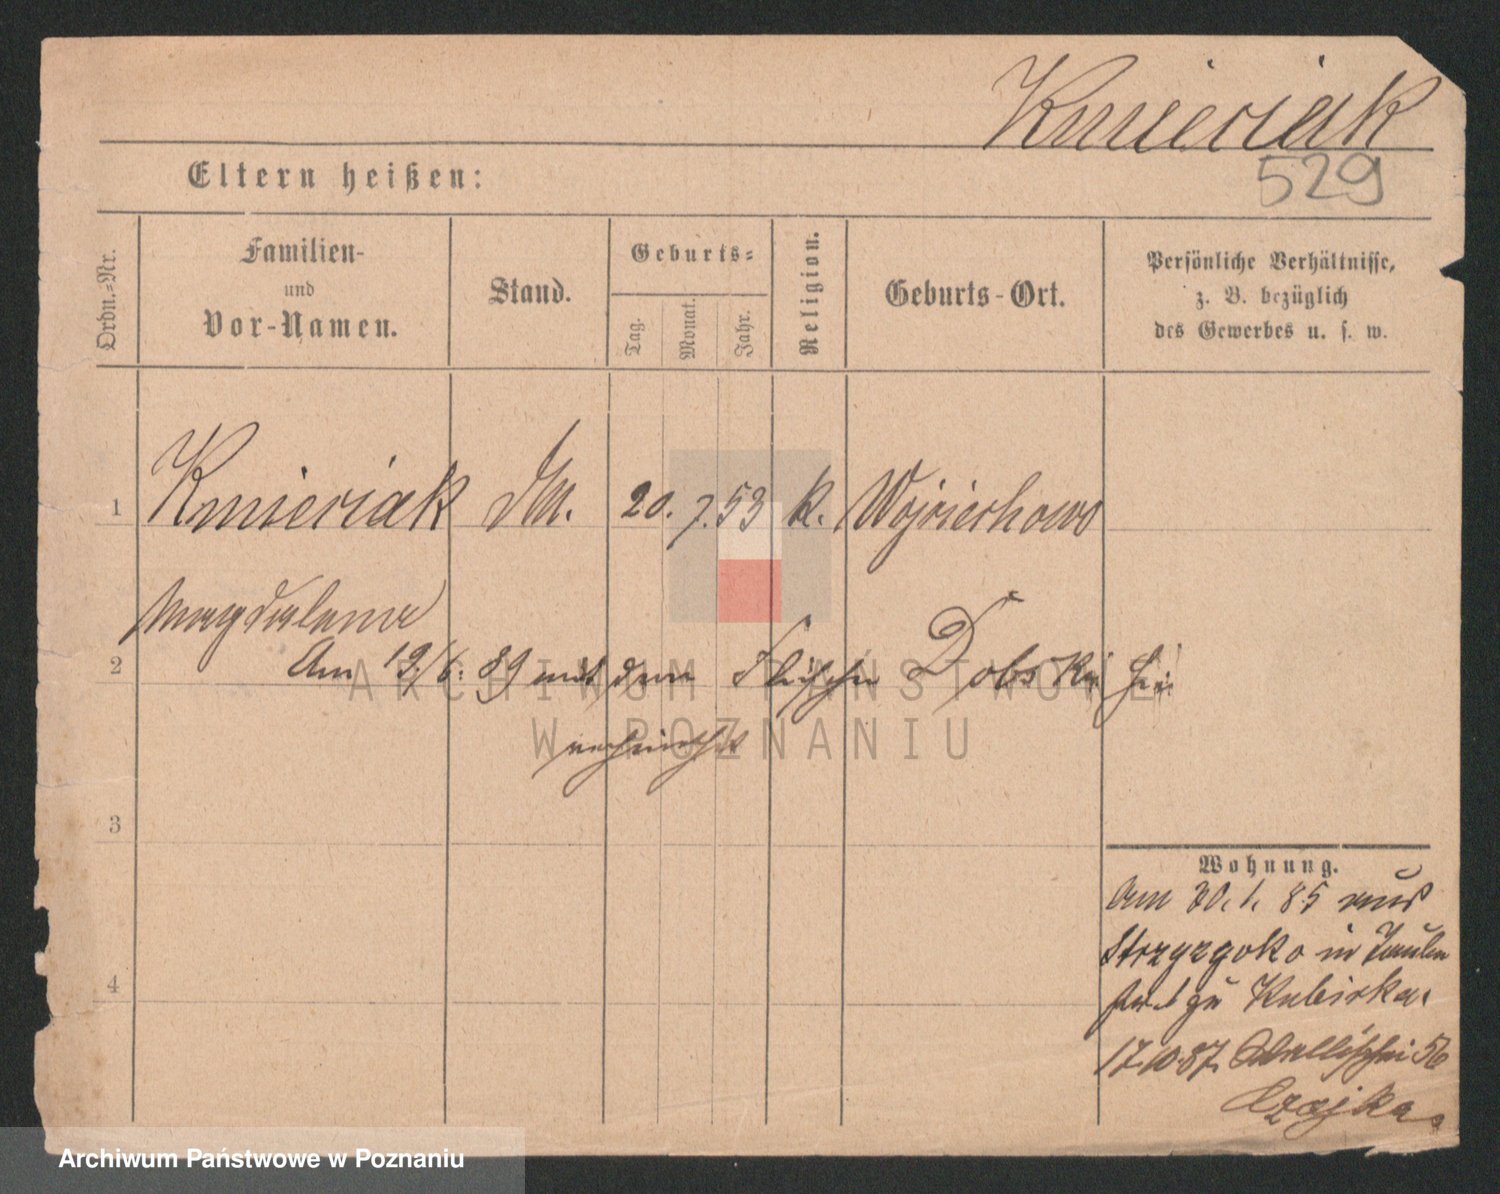 Kmieciak
529
Eltern heißen:
Ordn.=Nr.
Familien-
und
Vor-Namen.
Stand.
Geburts=
Tag.
Monat.
Jahr.
Religion.
Geburts-Ort.
Persönliche Verhältnisse,
z. B. bezüglich
des Gewerbes u. s. w.
1 Kmieciak 20. 7. 53 k. Wojciechowo
Magdalena
2 Am 19/6. 89 mit dem Fleischer Dobski hier
verheirathet
3
Wohnung.
Am 30. 1. 85 aus
in
zu Kubicka.
4
17.10.87. Wallischei 56
Czajka.
ARCHIWUM PAŃSTWOWE
W POZNANIU
Archiwum Państwowe w Poznaniu